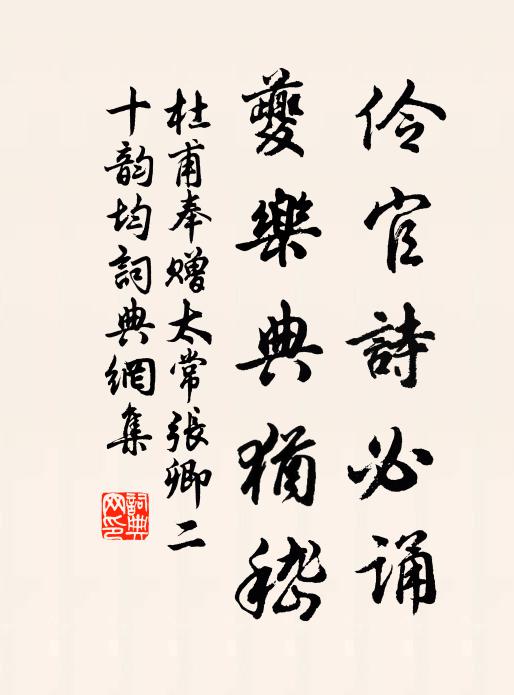 伶官詩必誦
夔樂典猶稽
杜甫奉贈太常張卿二
十韵均詞典網集
詞典網印